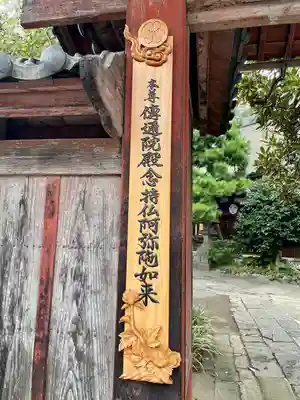 本尊 傳通院殿念持仏阿弥陀如来